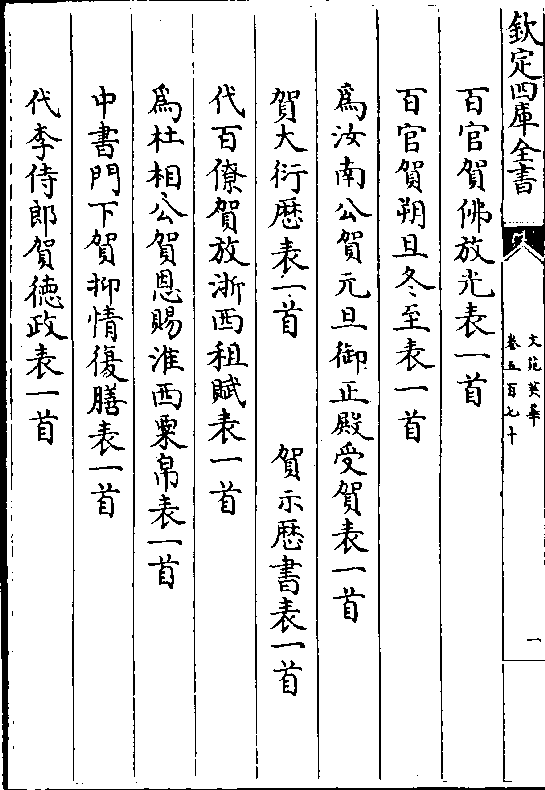 欽定四庫全書
文苑英華
卷五百七十
一
百官賀佛放光表一首
百官賀朔旦冬至表一首
爲汝南公賀元旦御正殿受賀表一首
賀大衍歴表一首　賀示歴書表一首
代百僚賀放浙西租賦表一首
爲杜相公賀恩賜淮西粟帛表一首
中書門下賀抑情復膳表一首
代李侍郎賀德政表一首